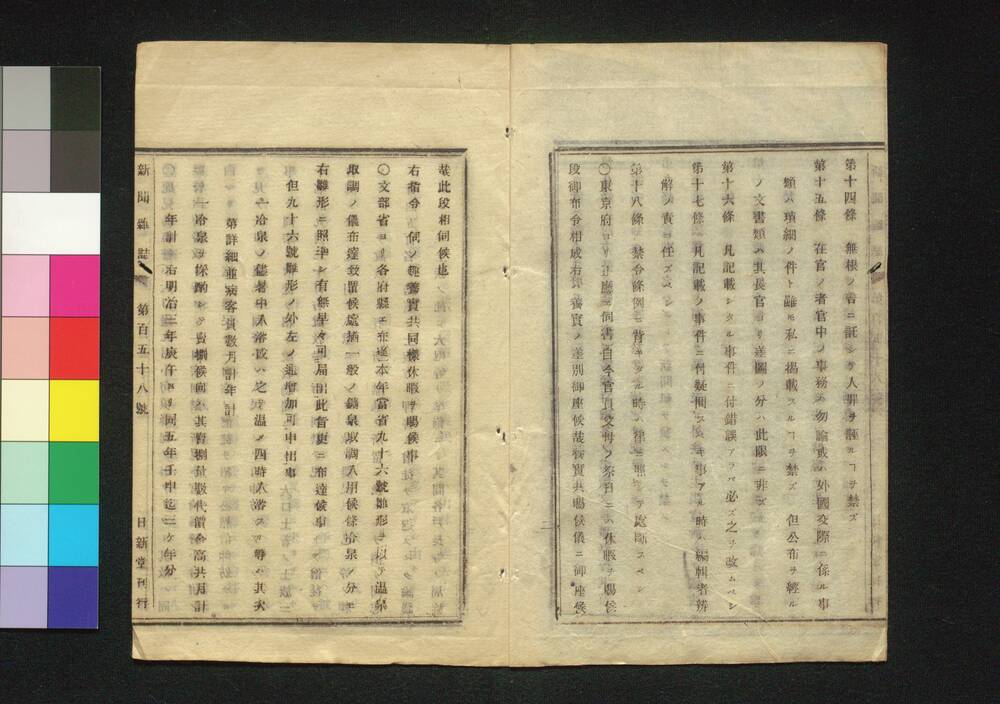 第十四條 無根ノ咎ニ託シテ人罪ヲ誣ルヿヲ禁ズ
第十五條 在官ノ者官中ノ事務ハ勿論或ハ外國交際ニ係ル事
類ハ瑣細ノ件ト雖モ私ニ掲載スルヿヲ禁ズ 但公布ヲ經ル
ノ文書類ハ其長官ヨリ差圖ノ分ハ此限ニ非ズ
第十六條 凡記載シタル事件ニ付錯誤アラバ必ズ之ヲ改ムベシ
第十七條 凡記載ノ事件ニ付疑問スベキ事アル時ハ編輯者辨
解ノ責ニ任ズベシ
第十八條 禁令條例ニ背キタル時ハ律ニ照シテ處斷スベシ
〇東京府ヨリ正廳ニ伺書自今官員父母ノ祭日ニハ休暇ヲ賜候
段御布令相成右養實ノ差別御座候哉養實共賜候儀ニ御座候
哉此段相伺候也
右指令 伺ノ趣養實共同樣休暇ヲ賜候事
〇文部省ヨリ各府縣エ布達 本年當省九十六號雛形ヲ以テ溫泉
取調ノ儀布達致置候處猶一般ノ鑛泉取調入用候條冷泉ノ分モ
右雛形ニ照準シ有無早々可届出此旨更ニ布達候事
但九十六號雛形ノ外左ノ通增加可申出事
一冷泉ノ儘者中入浴或ハ之ヲ溫メ四時入浴スル等ハ其次
第詳細並病客員數月計年計
一冷泉ヲ採酌シテ賣捌候向ハ其賣捌量數代價金高共月計
年計 右明治三年庚午ヨリ同五年壬申迄三ケ年分
新聞雜誌 第百五十八號 日新堂刊行